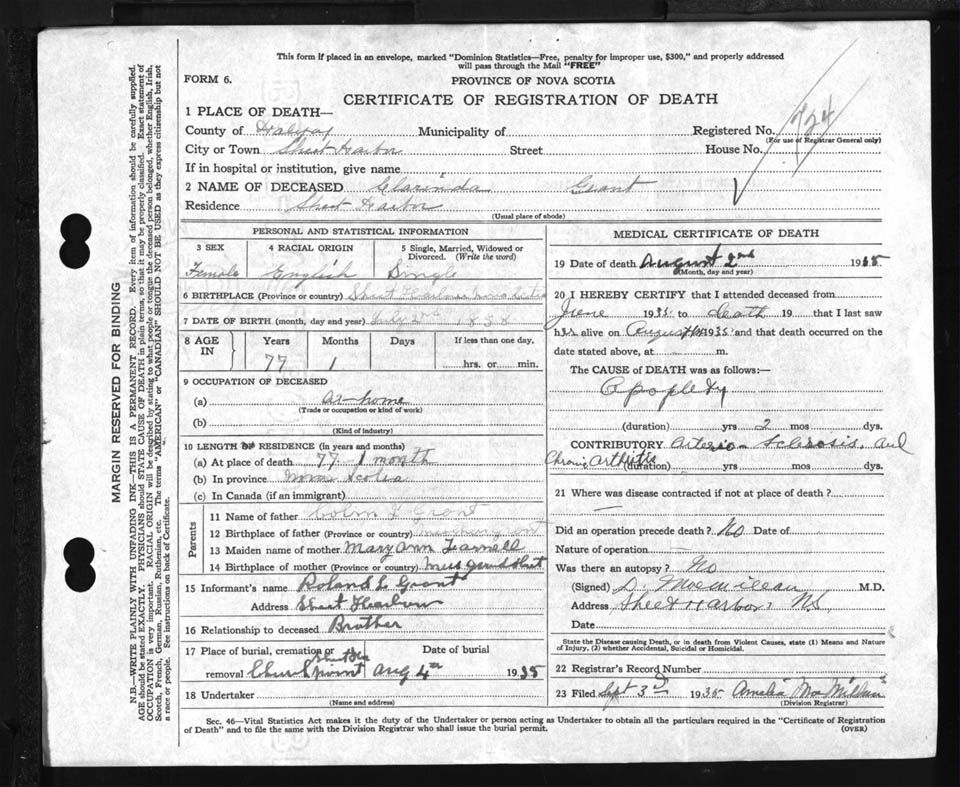 This form if placed in an envelope, marked "Dominion Statistics—Free, penalty for improper use, $300," and properly addressed
will pass through the Mail "FREE"
FORM 6.
PROVINCE OF NOVA SCOTIA
CERTIFICATE OF REGISTRATION OF DEATH
1 PLACE OF DEATH—
County of Halifax Municipality of Registered No. 724
(For use of Registrar General only)
City or Town Sheet Harbor Street House No.
If in hospital or institution, give name
2 NAME OF DECEASED Clarinda Grant
Residence Sheet Harbor
(Usual place of abode)
PERSONAL AND STATISTICAL INFORMATION
3 SEX 4 RACIAL ORIGIN 5 Single, Married, Widowed or Divorced. (Write the word)
Female English Single
6 BIRTHPLACE (Province or country) Sheet Harbour Nova Scotia
7 DATE OF BIRTH (month, day and year) July 2nd 1858
8 AGE IN Years Months Days If less than one day,
77 1 hrs. or min.
9 OCCUPATION OF DECEASED
(a) At home
(Trade or occupation or kind of work)
(b)
(Kind of industry)
10 LENGTH OF RESIDENCE (in years and months)
(a) At place of death 77 1 month
(b) In province Nova Scotia
(c) In Canada (if an immigrant)
Parents
11 Name of father Grant
12 Birthplace of father (Province or country)
13 Maiden name of mother Mary Ann
14 Birthplace of mother (Province or country)
15 Informant's name Roland L Grant
Address Sheet Harbour
16 Relationship to deceased Brother
17 Place of burial, cremation or removal Church Point Date of burial Aug 4th 1935
18 Undertaker
(Name and address)
MEDICAL CERTIFICATE OF DEATH
19 Date of death August 2nd 1935
(Month, day and year)
20 I HEREBY CERTIFY that I attended deceased from
June 1935 to death 19 that I last saw
h alive on August 1935 and that death occurred on the
date stated above, at m.
The CAUSE of DEATH was as follows:—
Apoplexy
(duration) yrs 2 mos dys.
CONTRIBUTORY Arterio Sclerosis, and
Chronic Arthritis (duration) yrs mos dys.
21 Where was disease contracted if not at place of death?
Did an operation precede death? No Date of
Nature of operation
Was there an autopsy? No
(Signed) D. M.D.
Address Sheet Harbor NS
Date
State the Disease causing Death, or in death from Violent Causes, state (1) Means and Nature
of Injury, (2) whether Accidental, Suicidal or Homicidal.
22 Registrar's Record Number
23 Filed Sept 3rd 1935 Amelia
(Division Registrar)
Sec. 46—Vital Statistics Act makes it the duty of the Undertaker or person acting as Undertaker to obtain all the particulars required in the "Certificate of Registration
of Death" and to file the same with the Division Registrar who shall issue the burial permit. (OVER)
MARGIN RESERVED FOR BINDING
N.B.—WRITE PLAINLY WITH UNFADING INK—THIS IS A PERMANENT RECORD. Every item of information should be carefully supplied.
AGE should be stated EXACTLY. PHYSICIANS should STATE CAUSE OF DEATH in plain terms, so that it may be properly classified. Exact statement of
OCCUPATION is very important. RACIAL ORIGIN will be described by stating to what people or tongue the deceased person belonged, whether English, Irish,
Scotch, French, German, Russian, Ruthenian, etc. The terms "AMERICAN" or "CANADIAN" SHOULD NOT BE USED as they express citizenship but not
a race or people. See instructions on back of Certificate.